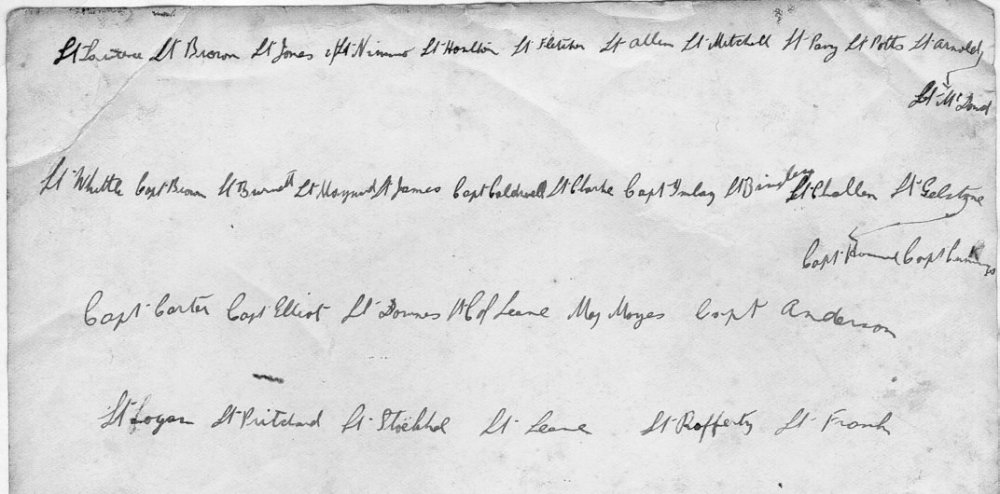 Lt Lawrence Lt Brown Lt Jones Lt Nimmo Lt Houlton Lt Fletcher Lt Allen Lt Mitchell Lt Parry Lt Potts Lt Arnold
Lt
Lt Whittle Capt Brown Lt Burnett Lt Maynard Lt James Capt Caldwell Lt Clarke Capt Imlay Lt Lt Challen Lt Gelstone
Capt Capt
Capt Carter Capt Elliot Lt Downes Lt Col Leane Maj Moyes Capt Anderson
Lt Logan Lt Pritchard Lt Lt Leane Lt Rafferty Lt Frank